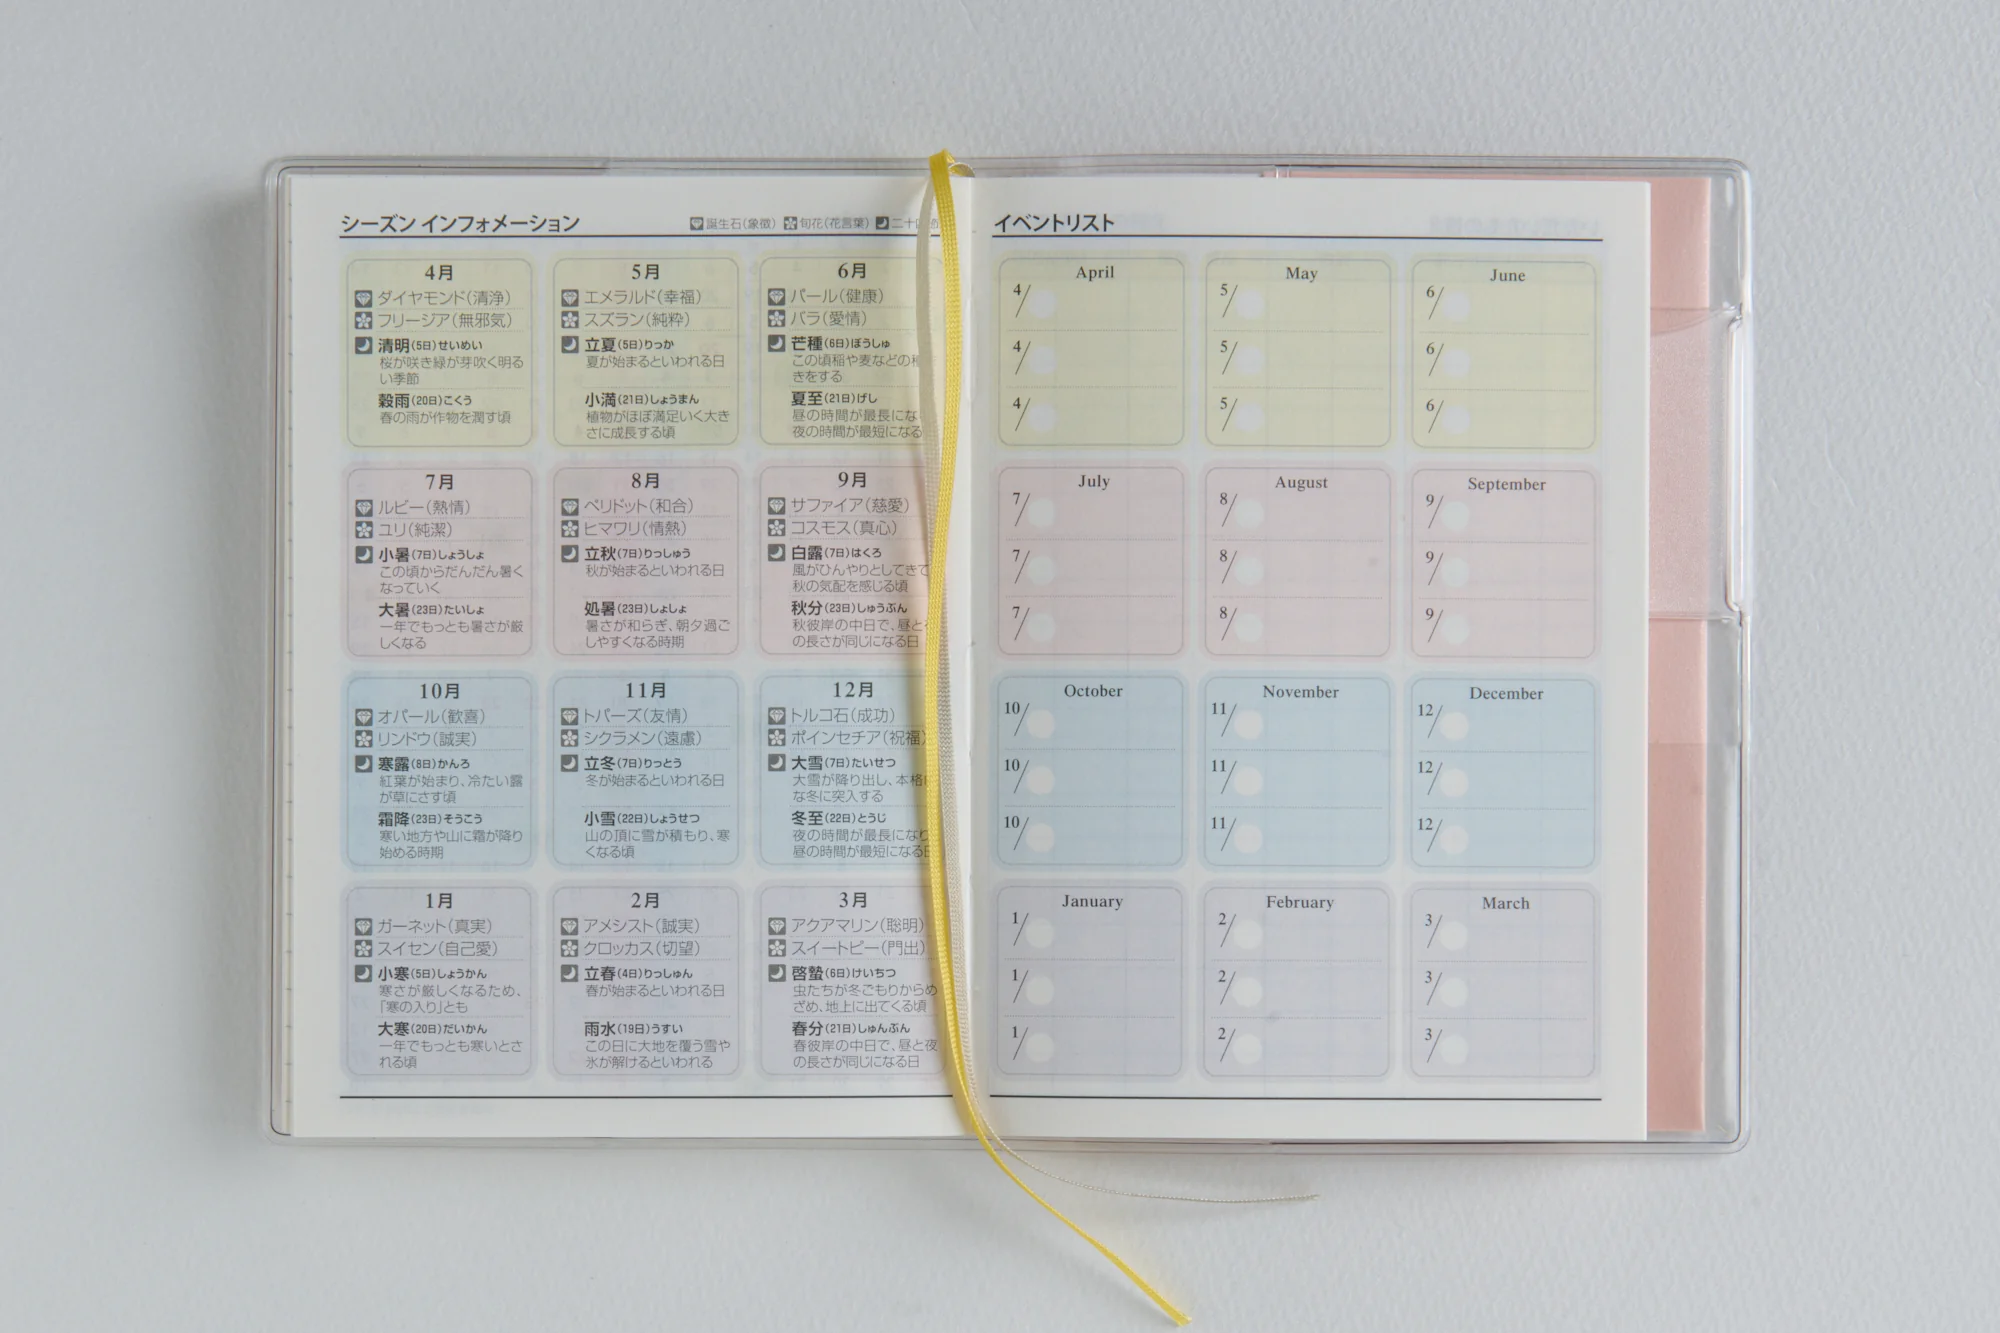 シーズン インフォメーション
誕生石(象徴) 旬花(花言葉) 二十四
4月
ダイヤモンド(清浄)
フリージア(無邪気)
清明(5日)せいめい
桜が咲き緑が芽吹く明る
い季節
穀雨(20日)こくう
春の雨が作物を潤す頃
5月
エメラルド(幸福)
スズラン(純粋)
立夏(5日)りっか
夏が始まるといわれる日
小満(21日)しょうまん
植物がほぼ満足いく大き
さに成長する頃
6月
パール(健康)
バラ(愛情)
芒種(6日)ぼうしゅ
この頃稲や麦などの種
きをする
夏至(21日)げし
昼の時間が最長にな
夜の時間が最短になる
7月
ルビー(熱情)
ユリ(純潔)
小暑(7日)しょうしょ
この頃からだんだん暑く
なっていく
大暑(23日)たいしょ
一年でもっとも暑さが厳
しくなる
8月
ペリドット(和合)
ヒマワリ(情熱)
立秋(7日)りっしゅう
秋が始まるといわれる日
処暑(23日)しょしょ
暑さが和らぎ、朝夕過ご
しやすくなる時期
9月
サファイア(慈愛)
コスモス(真心)
白露(7日)はくろ
風がひんやりとしてきて
秋の気配を感じる頃
秋分(23日)しゅうぶん
秋彼岸の中日で、昼と
の長さが同じになる日
10月
オパール(歓喜)
リンドウ(誠実)
寒露(8日)かんろ
紅葉が始まり、冷たい露
が草にさす頃
霜降(23日)そうこう
寒い地方や山に霜が降り
始める時期
11月
トパーズ(友情)
シクラメン(遠慮)
立冬(7日)りっとう
冬が始まるといわれる日
小雪(22日)しょうせつ
山の頂に雪が積もり、寒
くなる頃
12月
トルコ石(成功)
ポインセチア(祝福)
大雪(7日)たいせつ
大雪が降り出し、本格
な冬に突入する
冬至(22日)とうじ
夜の時間が最長になり
昼の時間が最短になる日
1月
ガーネット(真実)
スイセン(自己愛)
小寒(5日)しょうかん
寒さが厳しくなるため、
「寒の入り」とも
大寒(20日)だいかん
一年でもっとも寒いとさ
れる頃
2月
アメシスト(誠実)
クロッカス(切望)
立春(4日)りっしゅん
春が始まるといわれる日
雨水(19日)うすい
この日に大地を覆う雪や
氷が解けるといわれる
3月
アクアマリン(聡明)
スイートピー(門出)
啓蟄(6日)けいちつ
虫たちが冬ごもりからめ
ざめ、地上に出てくる頃
春分(21日)しゅんぶん
春彼岸の中日で、昼と夜
の長さが同じになる日
イベントリスト
April
4/
4/
4/
May
5/
5/
5/
June
6/
6/
6/
July
7/
7/
7/
August
8/
8/
8/
September
9/
9/
9/
October
10/
10/
10/
November
11/
11/
11/
December
12/
12/
12/
January
1/
1/
1/
February
2/
2/
2/
March
3/
3/
3/